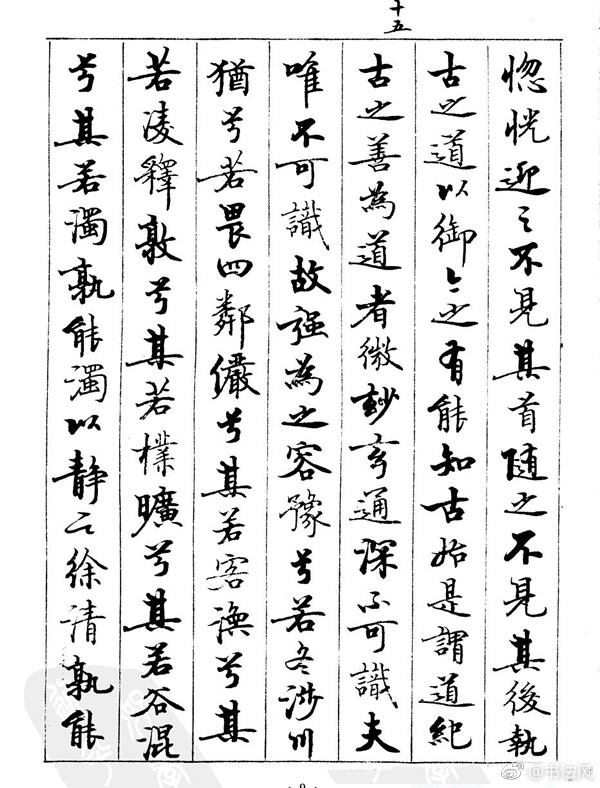 十五
惚恍迎之不見其首随之不見其後執
古之道以御今之有能知古始是謂道紀
古之善為道者微玅玄通深不可識夫
唯不可識故强為之容豫兮若冬涉川
猶兮若畏四鄰儼兮其若客渙兮其
若凌釋敦兮其若樸曠兮其若谷混
兮其若濁孰能濁以静之徐清孰能
· 9 ·
@书法网